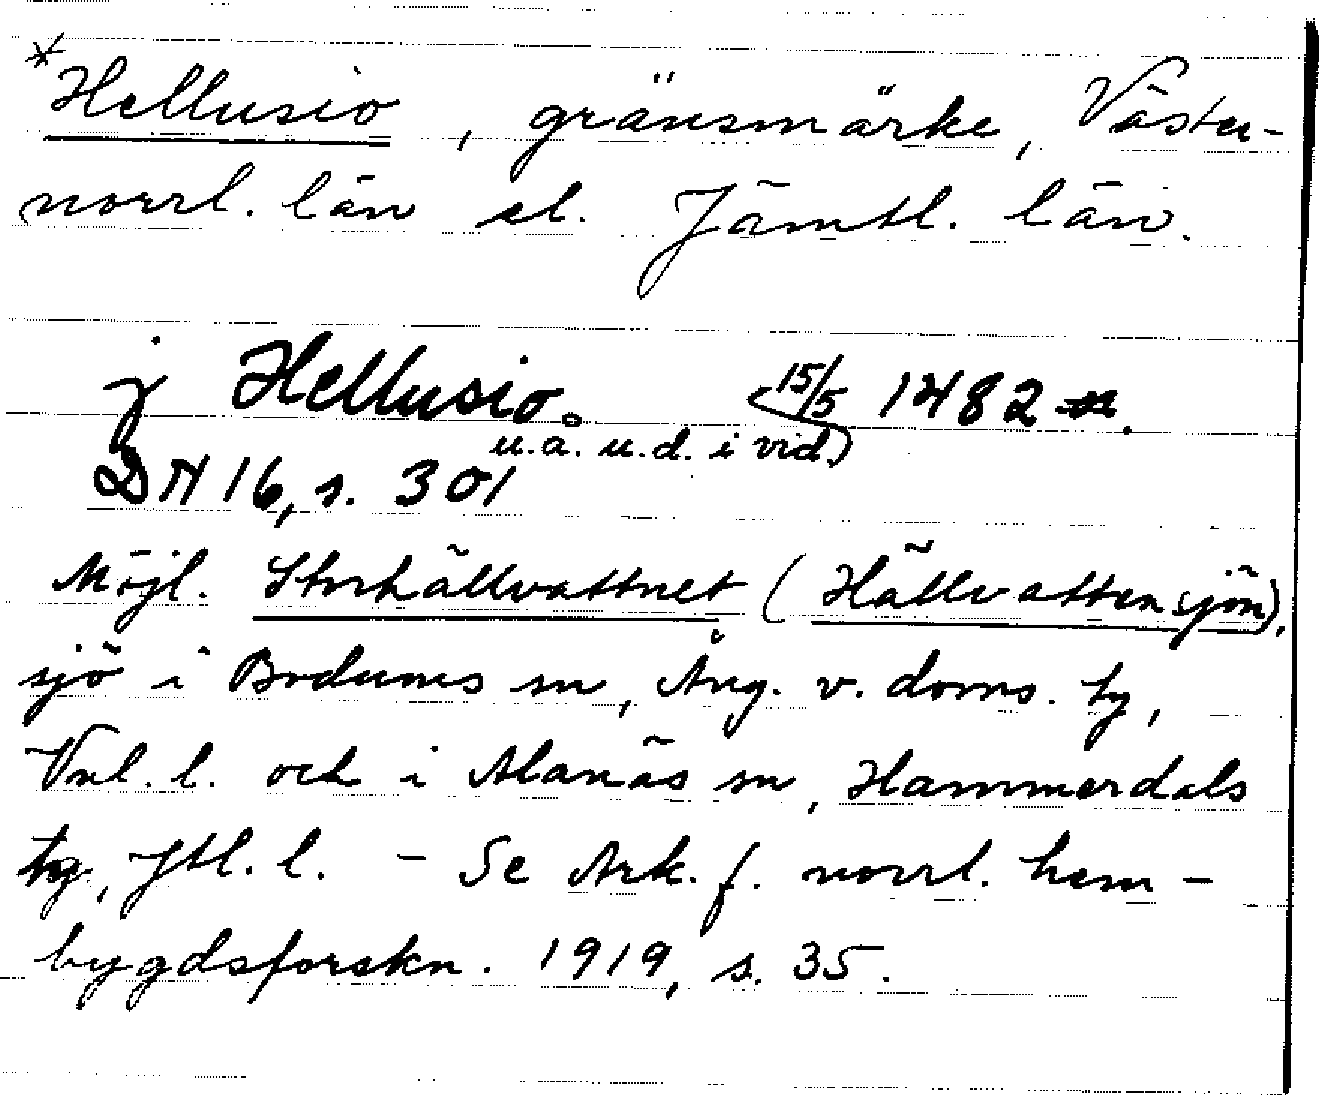 *Hellusio, gränsmärke, Väster-
norrl. län el. Jämtl. län.
j Hellusio. (15/5 1482
u.a. u.d. i vid)
DN 16, s. 301
Möjl. Storhällvattnet (Hällvattensjön),
sjö i Bodums sn, Ång. v. doms. tg,
Vnl. l. och i Alanäs sn, Hammerdals
tg, Jtl. l. - Se Ark. f. norrl. hem-
bygdsforskn. 1919, s. 35.